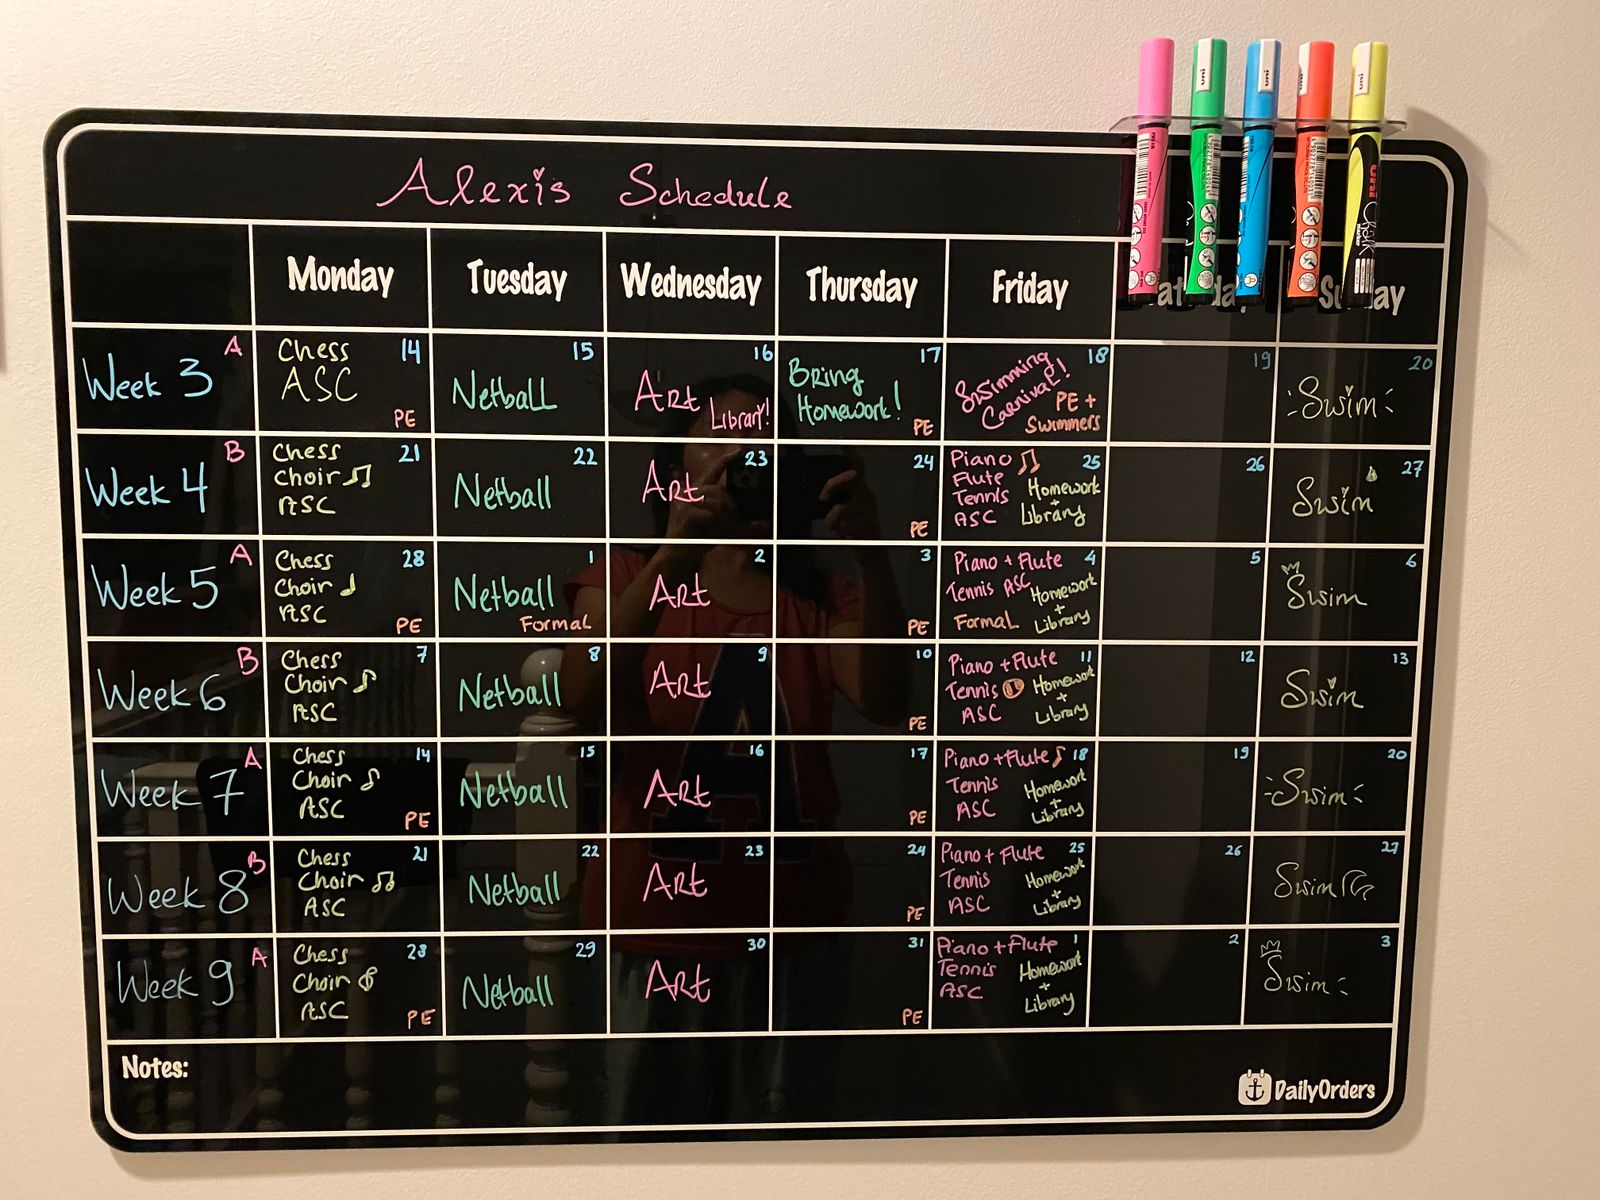 Alexis Schedule
Monday Tuesday Wednesday Thursday Friday
Week 3 A
Chess 14
ASC
PE
15
Netball
16
Art
Library!
17
Bring
Homework!
PE
18
Swimming
Carnival!
PE +
Swimmers
19
20
Swim
Week 4 B
Chess 21
Choir
ASC
22
Netball
23
Art
24
PE
Piano 25
Flute
Tennis
ASC
Homework
+
Library
26
27
Swim
Week 5 A
Chess 28
Choir
ASC
PE
1
Netball
Formal
2
Art
3
PE
Piano + Flute 4
Tennis ASC
Formal
Homework
+
Library
5
6
Swim
Week 6 B
Chess 7
Choir
ASC
8
Netball
9
Art
10
PE
Piano + Flute 11
Tennis
ASC
Homework
+
Library
12
13
Swim
Week 7 A
Chess 14
Choir
ASC
PE
15
Netball
16
Art
17
PE
Piano + Flute 18
Tennis
ASC
Homework
+
Library
19
20
Swim
Week 8 B
Chess 21
Choir
ASC
22
Netball
23
Art
24
PE
Piano + Flute 25
Tennis
ASC
Homework
+
Library
26
27
Swim
Week 9 A
Chess 28
Choir
ASC
PE
29
Netball
30
Art
31
PE
Piano + Flute 1
Tennis
ASC
Homework
+
Library
2
3
Swim
Notes:
DailyOrders
uni
uni
uni
uni
uni
Chalk
marker